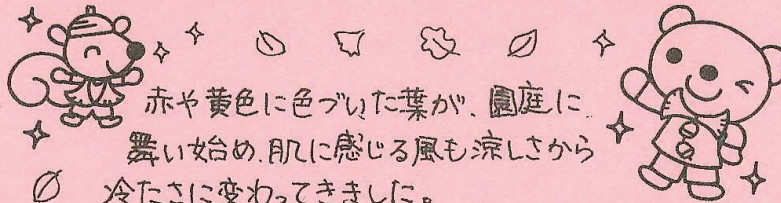 赤や黄色に色づいた葉が、園庭に
舞い始め、肌に感じる風も涼しさから
冷たさに変わってきました。